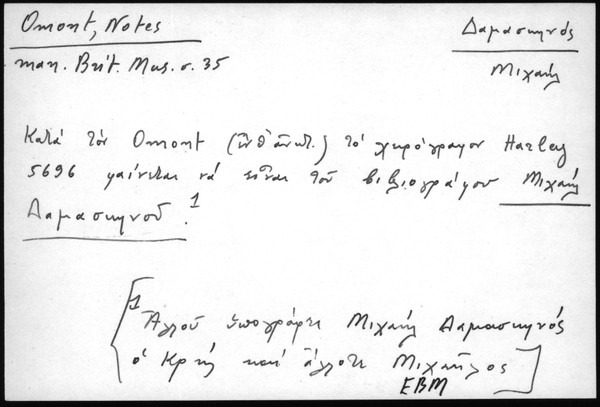 Omont, Notes
man. Brit. Mus. σ. 35
Δαμασκηνός
Μιχαήλ
Κατά τόν Omont (ἔνθ' ἀνωτ.) τό χειρόγραφον Harley
5696 φαίνεται νά εἶναι τοῦ βιβλιογράφου Μιχαήλ
Δαμασκηνοῦ.¹
[1 Ἀλλοῦ ὑπογράφει Μιχαήλ Δαμασκηνός
ὁ Κρής καί ἄλλοτε Μιχαῆλος]
ΕΒΜ